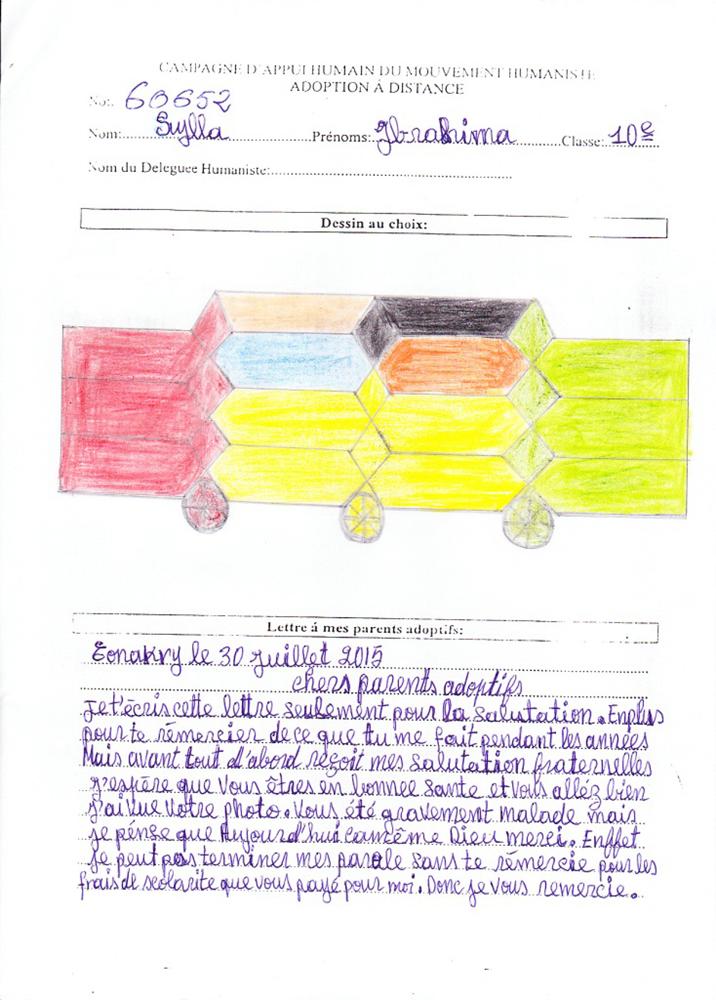 CAMPAGNE D'APPUI HUMAIN DU MOUVEMENT HUMANISTE
ADOPTION Á DISTANCE
No: 60652
Nom: Sylla Prénoms: Ibrahima Classe: 10e
Nom du Deleguee Humaniste:
Dessin au choix:
Lettre á mes parents adoptifs:
Conakry le 30 juillet 2015
chers parents adoptifs
Je t'écris cette lettre seulement pour la salutation. Enplus
pour te rémercier de ce que tu me fait pendant les années
Mais avant tout d'abord reçoit mes salutation fraternelles
j'espère que vous êtres en bonnee sante et vous alléz bien
j'ai vue votre photo. vous été gravement malade mais
je pénse que Aujourd'hui camême Dieu merci. Enffet
je peut pas terminer mes parole sans te rémercie pour les
frais de scolarite que vous payé pour moi. Donc je vous remercie.